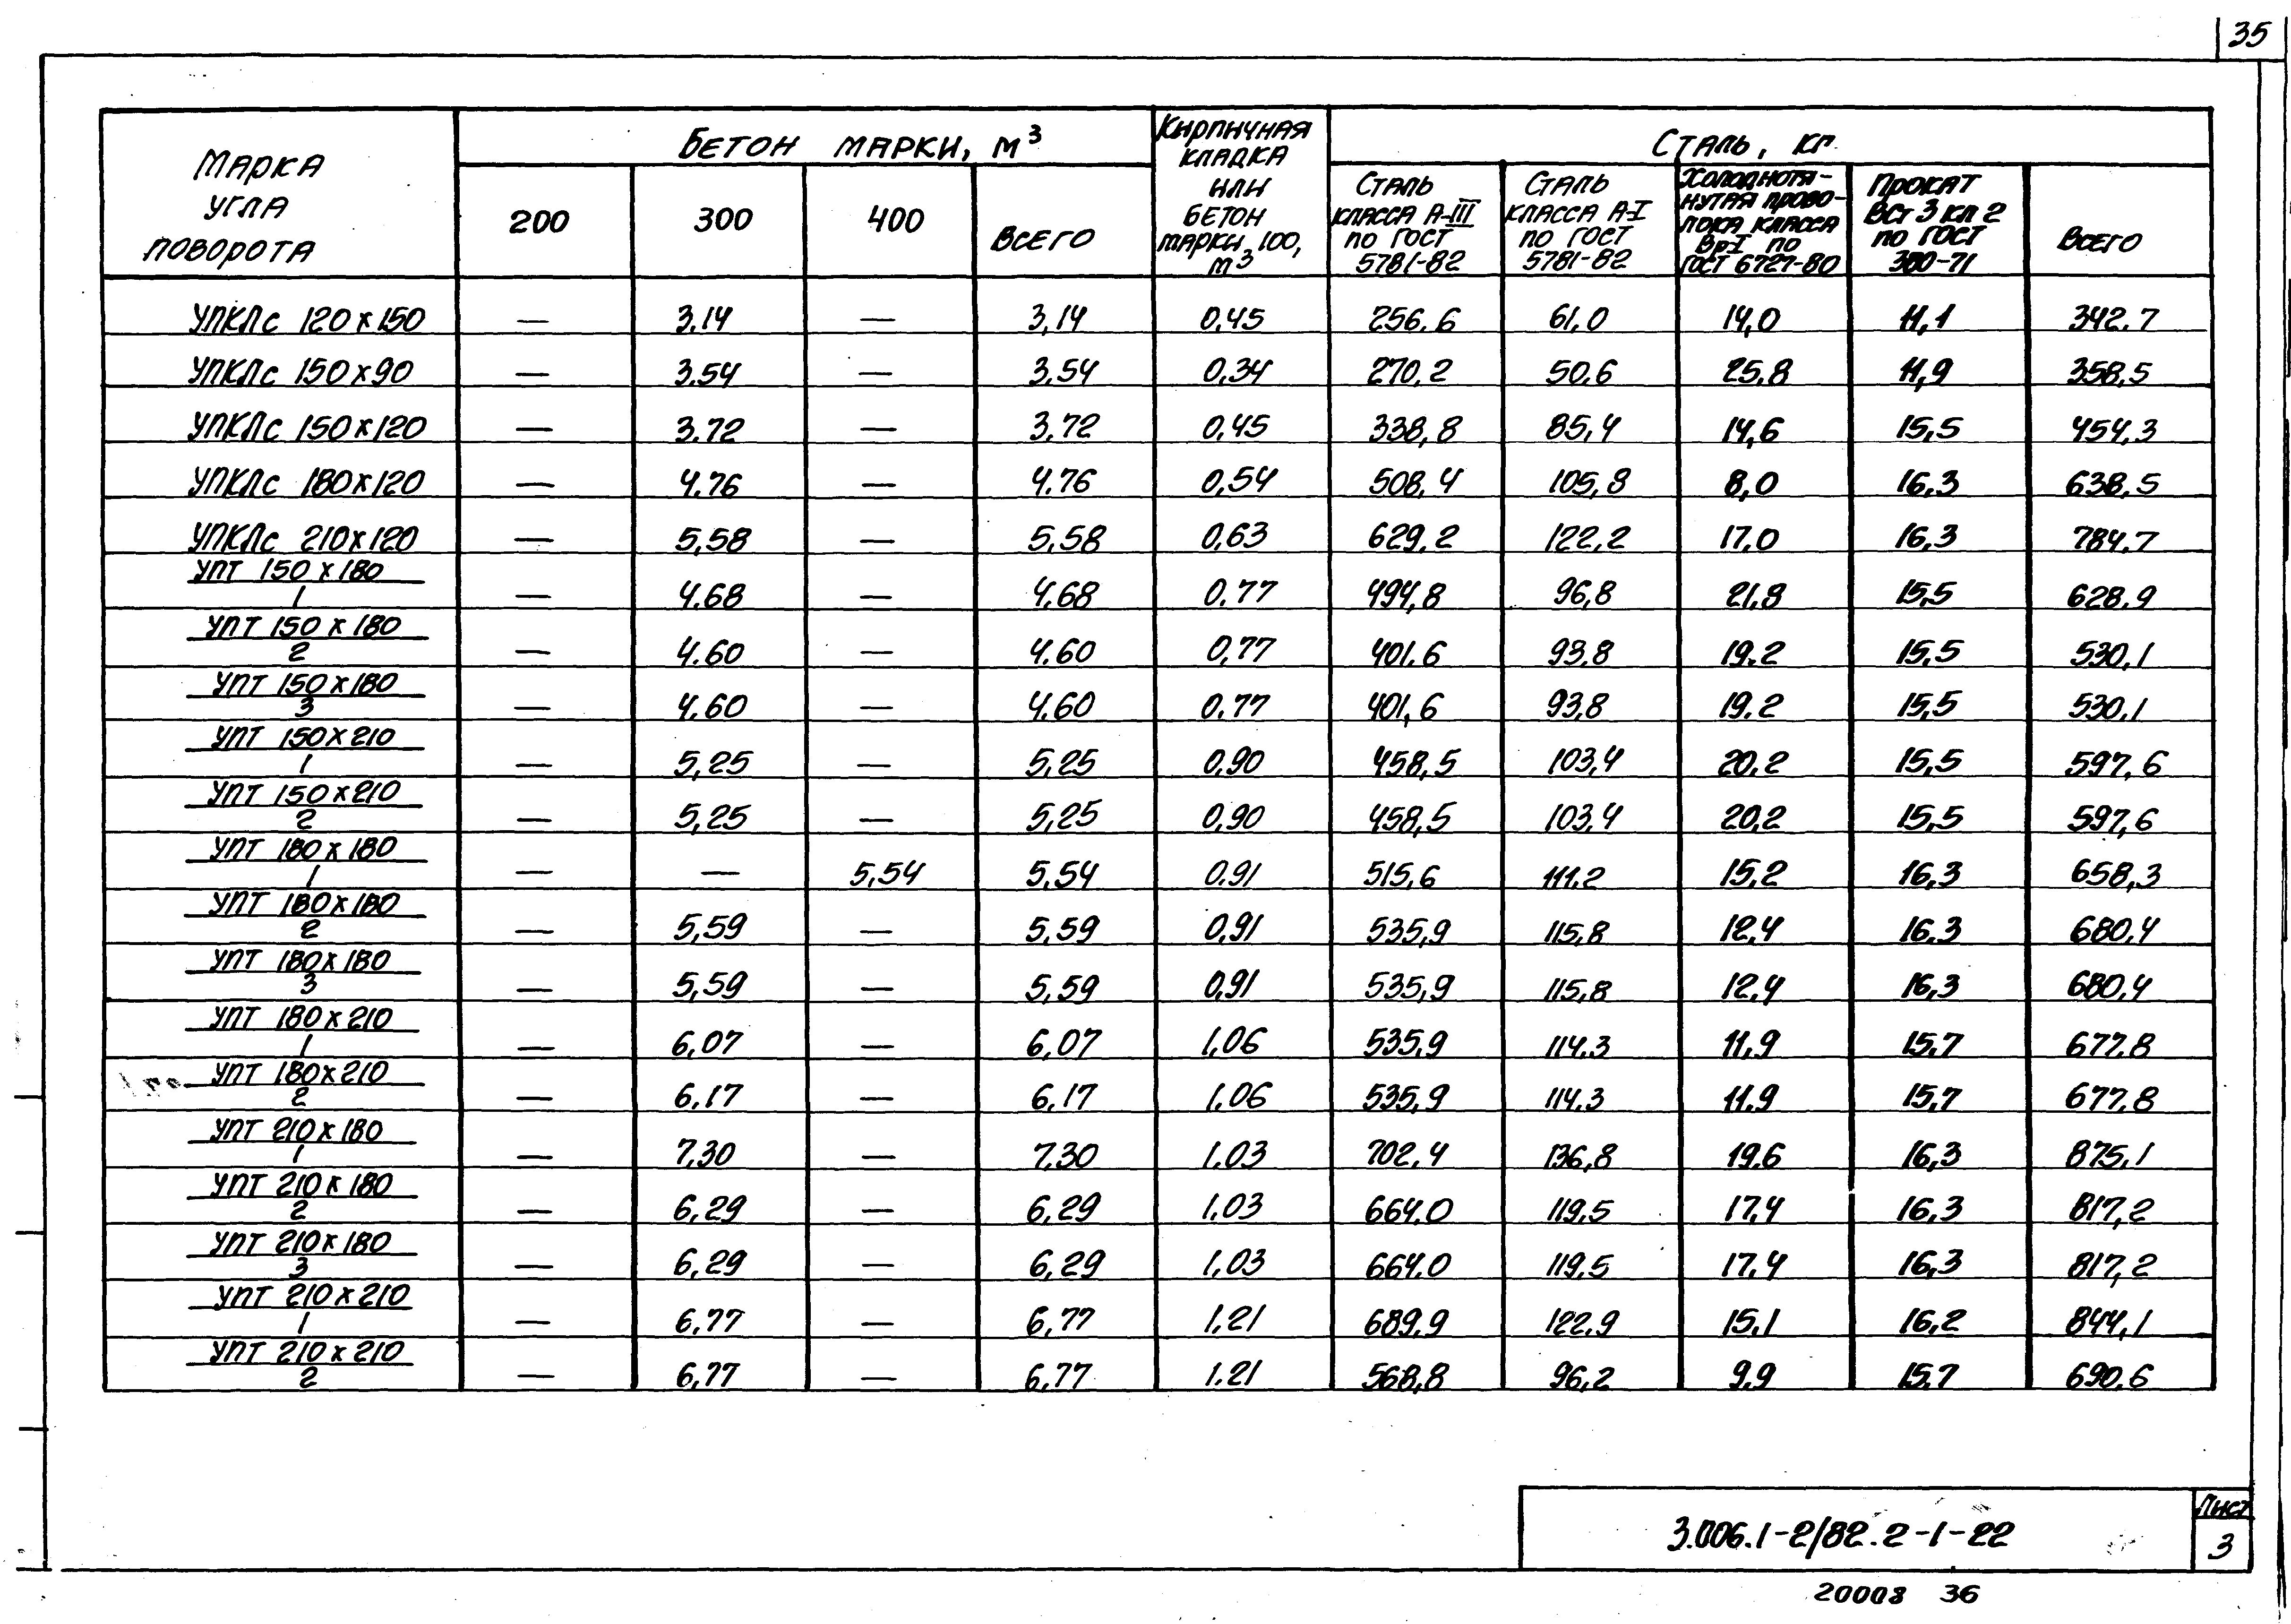 35
Марка угла поворота
Бетон марки, м³
200
300
400
Всего
Кирпичная кладка или бетон марки 100, м³
Сталь, кг
Сталь класса А-III по ГОСТ 5781-82
Сталь класса А-I по ГОСТ 5781-82
Холоднотянутая проволока класса Вр-I по ГОСТ 6727-80
Прокат ВСт 3 кп 2 по ГОСТ 380-71
Всего
УПКЛс 120×150 — 3.14 — 3,14 0.45 256.6 61,0 14,0 11,1 342.7
УПКЛс 150×90 — 3.54 — 3,54 0,34 270,2 50,6 25.8 11,9 358,5
УПКЛс 150×120 — 3.72 — 3,72 0,45 338,8 85,4 14,6 15,5 454,3
УПКЛс 180×120 — 4.76 — 4.76 0,54 508,4 105,8 8,0 16,3 638,5
УПКЛс 210×120 — 5,58 — 5,58 0,63 629,2 122,2 17.0 16,3 784.7
УПТ 150×180
1 — 4.68 — 4,68 0.77 494,8 96,8 21,8 15,5 628.9
УПТ 150×180
2 — 4.60 — 4.60 0,77 401.6 93,8 19.2 15,5 530,1
УПТ 150×180
3 — 4.60 — 4.60 0.77 401,6 93,8 19.2 15,5 530,1
УПТ 150×210
1 — 5,25 — 5,25 0,90 458,5 103,4 20,2 15,5 597,6
УПТ 150×210
2 — 5,25 — 5,25 0,90 458,5 103,4 20,2 15,5 597,6
УПТ 180×180
1 — — 5,54 5,54 0.91 515,6 111.2 15,2 16,3 658,3
УПТ 180×180
2 — 5,59 — 5,59 0,91 535,9 115,8 12,4 16,3 680,4
УПТ 180×180
3 — 5,59 — 5,59 0,91 535,9 115,8 12,4 16,3 680,4
УПТ 180×210
1 — 6,07 — 6,07 1,06 535,9 114.3 11,9 15.7 677.8
УПТ 180×210
2 — 6,17 — 6,17 1,06 535,9 114.3 11.9 15,7 677,8
УПТ 210×180
1 — 7,30 — 7,30 1,03 702,4 136,8 19.6 16,3 875,1
УПТ 210×180
2 — 6,29 — 6,29 1,03 664.0 119,5 17.4 16,3 817,2
УПТ 210×180
3 — 6,29 — 6,29 1,03 664.0 119,5 17.4 16,3 817,2
УПТ 210×210
1 — 6,77 — 6,77 1,21 689,9 122,9 15.1 16,2 844,1
УПТ 210×210
2 — 6,77 — 6,77 1.21 568,8 96,2 9.9 15.7 690,6
3.006.1-2/82.2-1-22
Лист
3
20008 36